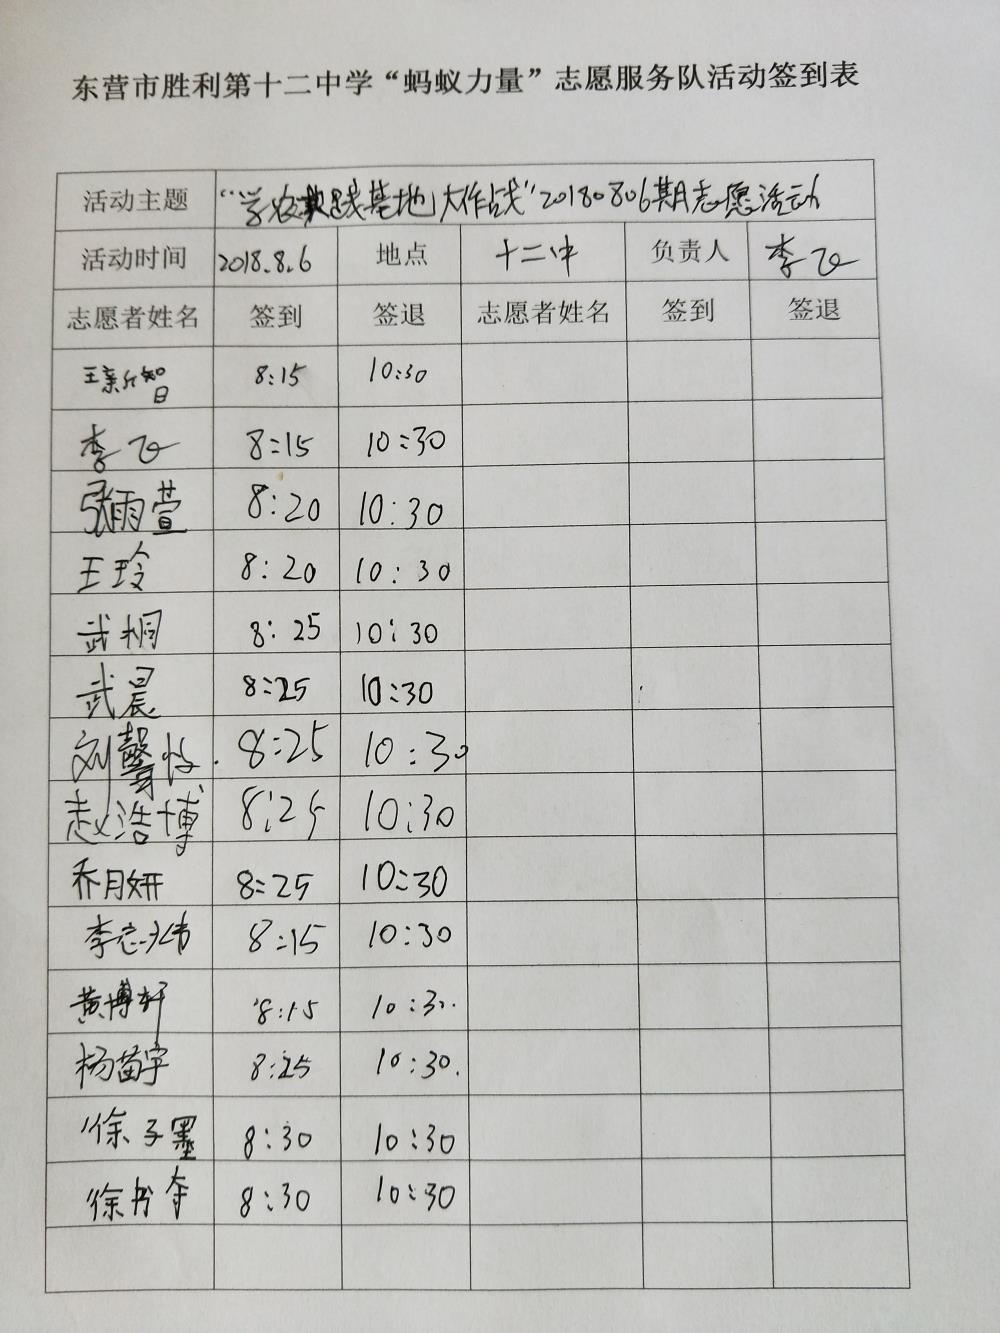 东营市胜利第十二中学“蚂蚁力量”志愿服务队活动签到表
活动主题 “学农实践基地大作战”20180806期志愿活动
活动时间 2018.8.6 地点 十二中 负责人 李飞
志愿者姓名 签到 签退 志愿者姓名 签到 签退
王新智 8:15 10:30
李飞 8:15 10:30
张雨萱 8:20 10:30
王玲 8:20 10:30
武桐 8:25 10:30
武晨 8:25 10:30
刘馨怡 8:25 10:30
赵浩博 8:25 10:30
乔月妍 8:25 10:30
李志炜 8:15 10:30
黄博轩 8:15 10:30.
杨苗宇 8:25 10:30.
徐子墨 8:30 10:30
徐书 8:30 10:30